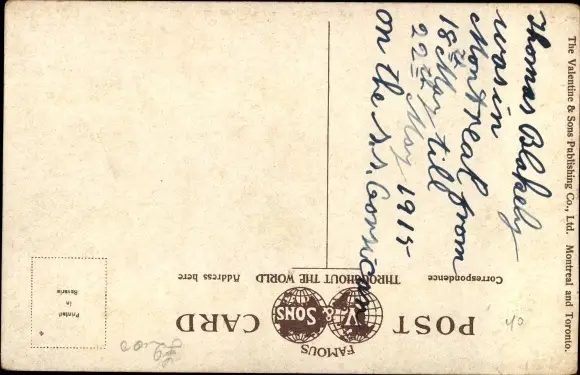 Thomas Blakely
was in
Montreal from
18th May till
22th May 1915
on the S.S. Corsican
The Valentine & Sons Publishing Co., Ltd. Montreal and Toronto.
POST CARD
FAMOUS
V. & SONS
THROUGHOUT THE WORLD
Correspondence
Address here
Printed
in
Bavaria